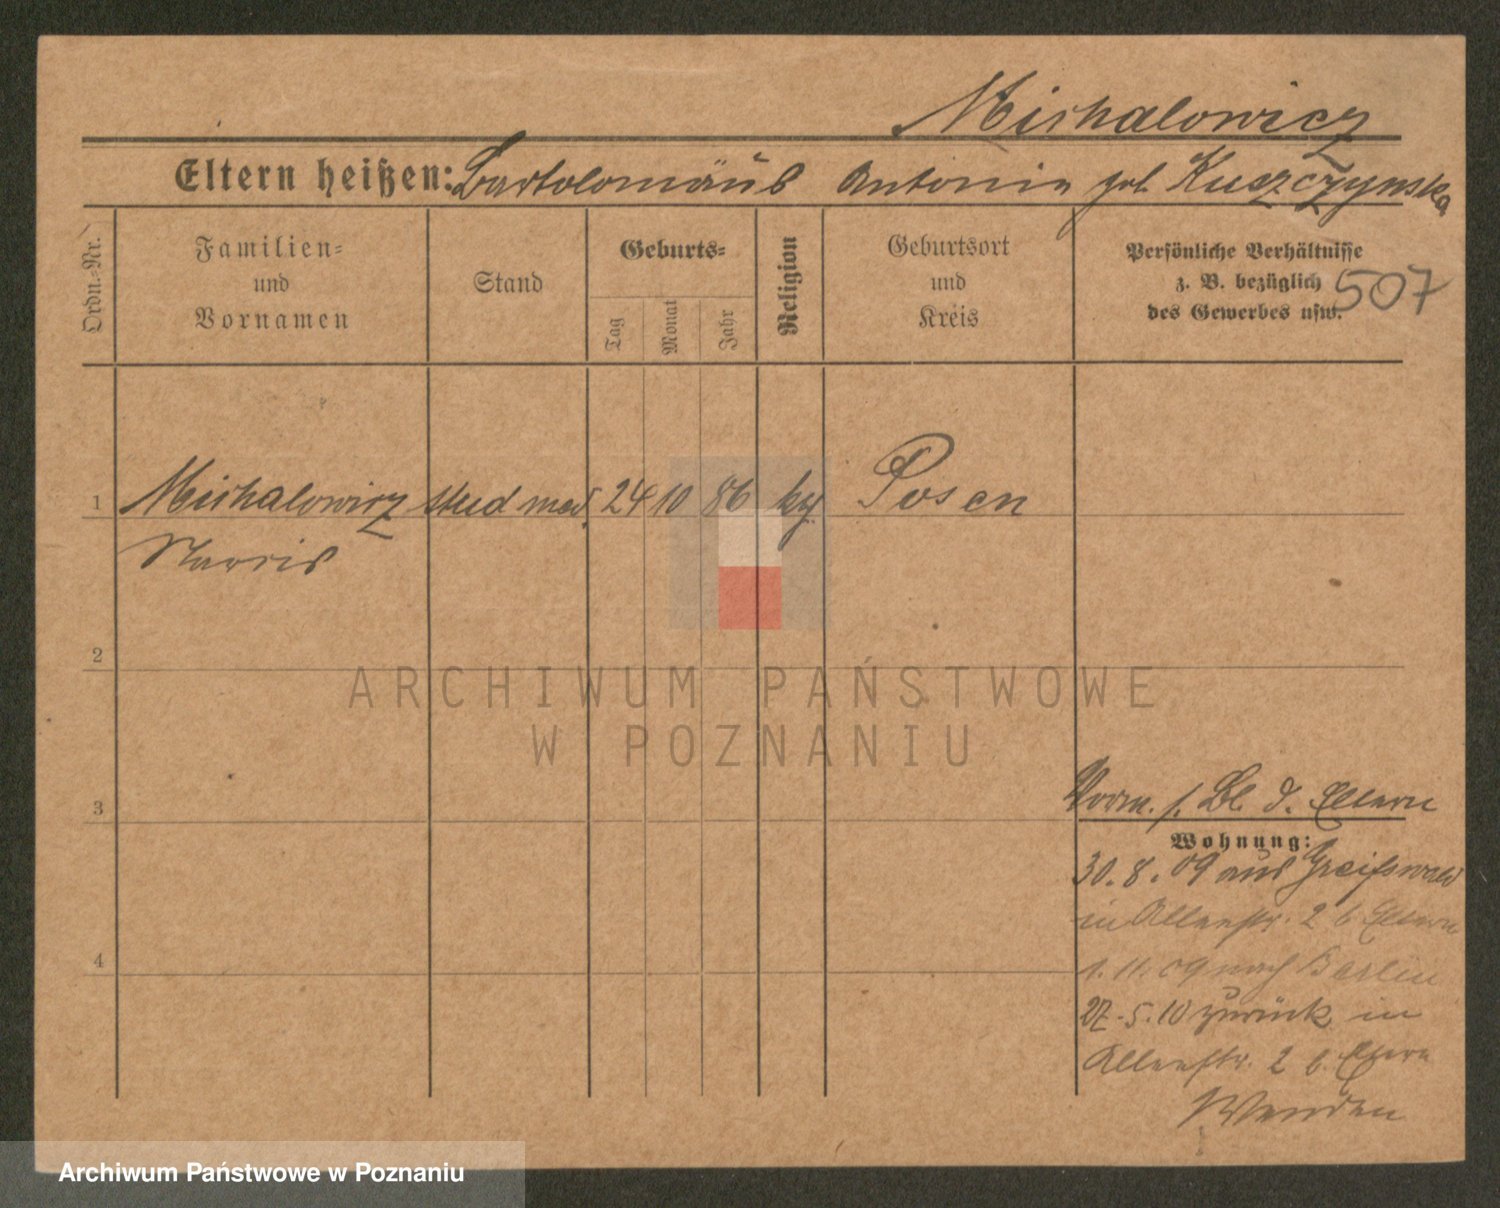 Michalowicz
Eltern heißen: Bartolomäus Antonin geb Kuszczynska
Ordn.-Nr.
Familien- und Vornamen
Stand
Geburts-
Tag
Monat
Jahr
Religion
Geburtsort und Kreis
Persönliche Verhältnisse
z. B. bezüglich
des Gewerbes usw.
507
1 Michalowicz stud med. 24 10 86 Posen
2
3
4
Vorm. s. Bl. d. Eltern
Wohnung:
30.8.09 aus Greifswald
in Allerstr. 2 b. Eltern
1.11.09 nach Berlin
27.5.10 zurück in
Allerstr. 2 b. Eltern
Wenden
ARCHIWUM PAŃSTWOWE
W POZNANIU
Archiwum Państwowe w Poznaniu